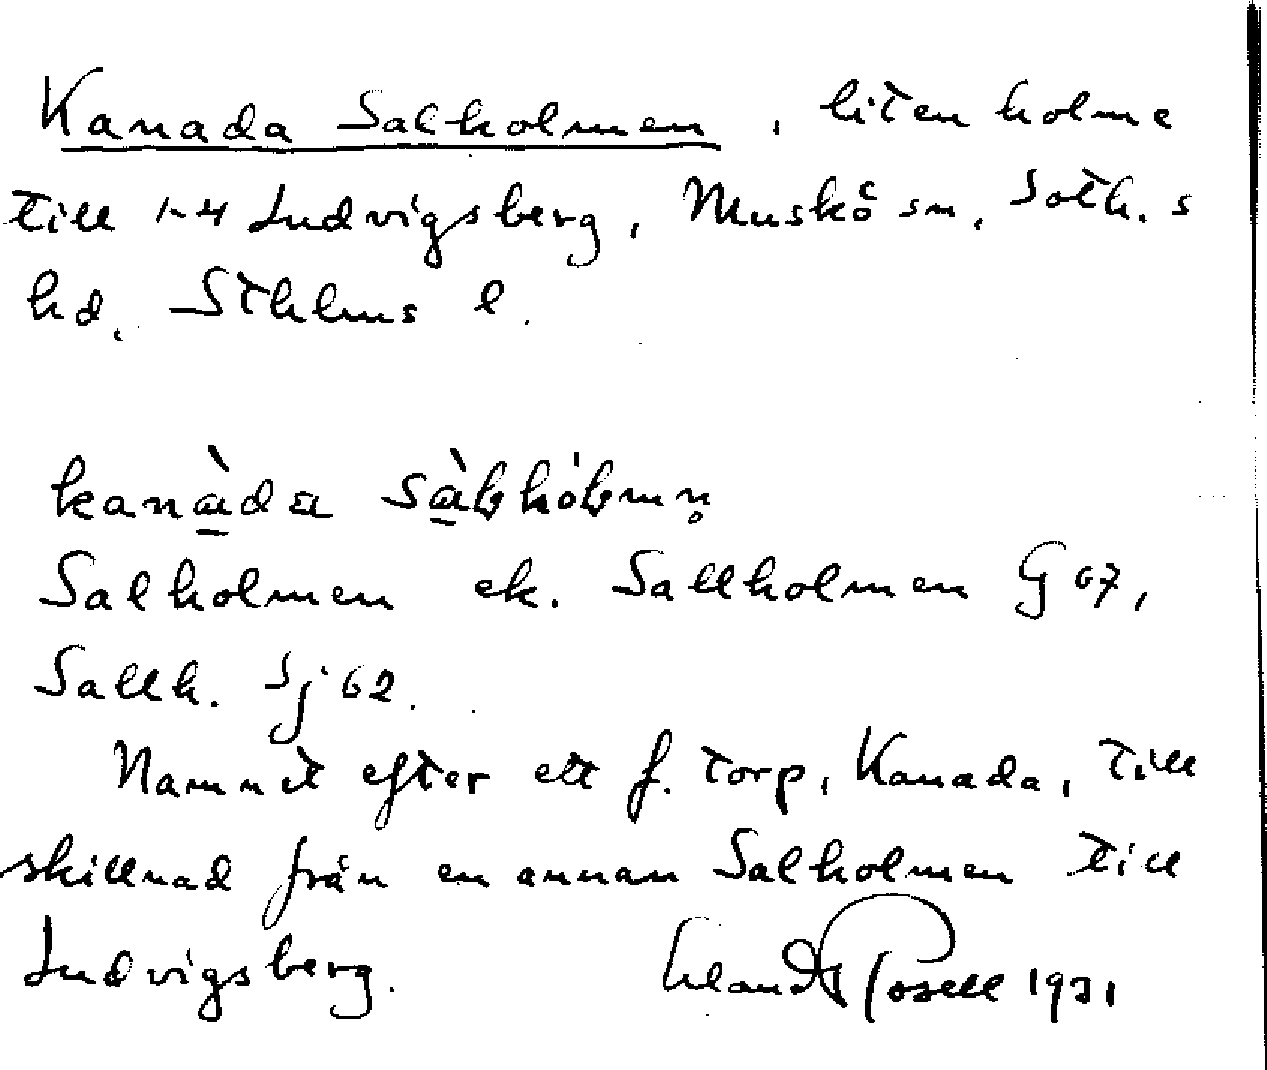 Kanada Salholmen, liten holme
till 1-4 Ludvigsberg, Muskö sn, Soth. s
hd, Sthlms l.
kanàda sàlhólmn̥
Salholmen ek. Sallholmen G 67,
Sallh. Sj 62.
Namnet efter ett f. torp, Kanada, till
skillnad från en annan Salholmen till
Ludvigsberg. Erland Rosell 1931